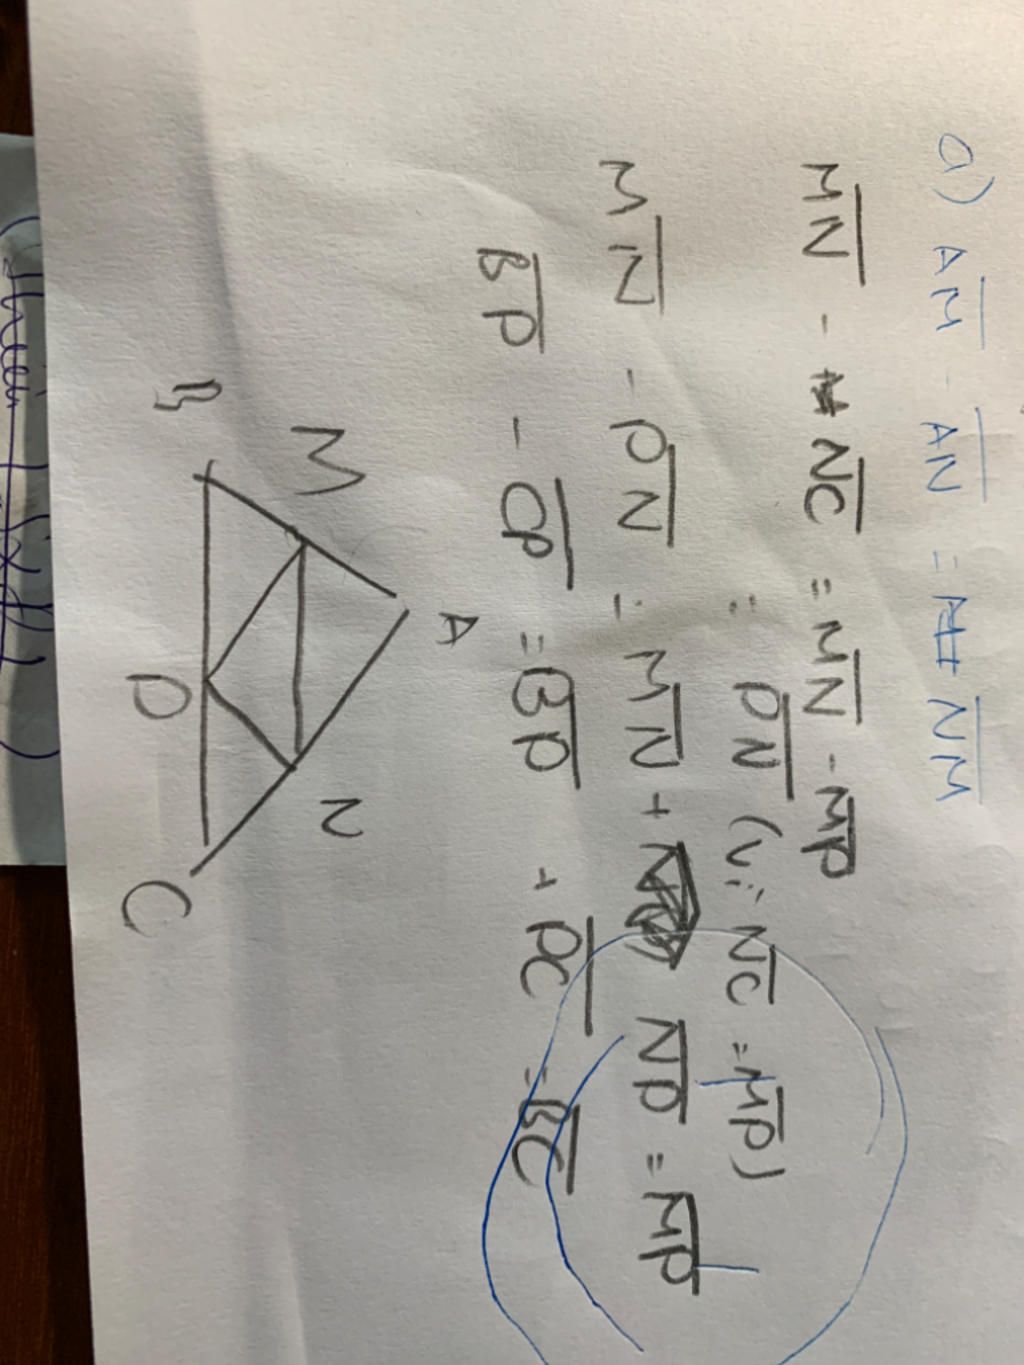 a) AM - AN = NM
MN - NC = MN - MP
= PN (vì NC = MP)
MN - PN = MN + NP = MP
BP - CP = BP + PC = BC
A
M
N
B
P
C